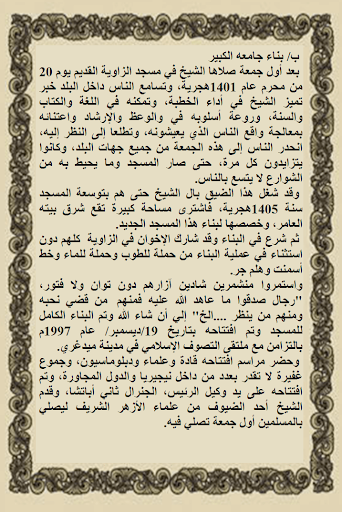 ب/ بناء جامعه الكبير
بعد أول جمعة صلاها الشيخ في مسجد الزاوية القديم يوم 20
من محرم عام 1401هجرية، وتسامع الناس داخل البلد خبر
تميز الشيخ في أداء الخطبة، وتمكنه في اللغة والكتاب
والسنة، وروعة أسلوبه في والوعظ والإرشاد واعتنائه
بمعالجة واقع الناس الذي يعيشونه، وتطلعا إلى النظر إليه،
انحدر الناس إلى هذه الجمعة من جميع جهات البلد، وكانوا
يتزايدون كل مرة، حتى صار المسجد وما يحيط به من
الشوارع لا يتسع بالناس.
وقد شغل هذا الضيق بال الشيخ حتى هم بتوسعة المسجد
سنة 1405هجرية، فاشترى مساحة كبيرة تقع شرق بيته
العامر، وخصصها لبناء هذا المسجد الجديد.
ثم شرع في البناء وقد شارك الإخوان في الزاوية كلهم دون
استثناء في عملية البناء من حملة للطوب وحملة للماء وخط
أسمنت وهلم جر.
واستمروا منشمرين شادين آزارهم دون توان ولا فتور،
"رجال صدقوا ما عاهد الله عليه فمنهم من قضي نحبه
ومنهم من ينظر ....الخ" إلي أن شاء الله وتم البناء الكامل
للمسجد وتم افتتاحه بتاريخ 19/ديسمبر/ عام 1997م
بالتزامن مع ملتقى التصوف الاسلامي في مدينة ميدغري.
وحضر مراسم افتتاحه قادة وعلماء ودبلوماسيون، وجموع
غفيرة لا تقدر بعدد من داخل نيجيريا والدول المجاورة، وتم
افتتاحه على يد وكيل الرئيس، الجنرال ثاني أباتشا، وقدم
الشيخ أحد الضيوف من علماء الأزهر الشريف ليصلي
بالمسلمين أول جمعة تصلي فيه.